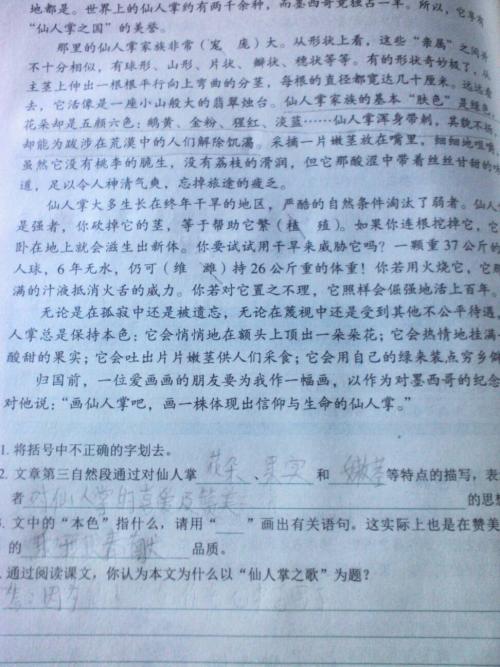 地都是。世界上的仙人掌约有两千余种，而墨西哥竟独占一半。所以，它享有
“仙人掌之国”的美誉。
那里的仙人掌家族非常（宠　庞）大。从形状上看，这些“亲属”之间并
不十分相似，有球形、山形、片状、瓣状、穗状等等。有的形状奇妙极了，从
主茎上伸出一根根平行向上弯曲的分茎，每根的直径都宽达几十厘米。远远看
去，它活像是一座小山般大的翡翠烛台。仙人掌家族的基本“肤色”是绿色，
花朵却是五颜六色：鹅黄、金粉、猩红、淡蓝……仙人掌浑身带刺，其貌不扬
却能为跋涉在荒漠中的人们解除饥渴。采摘一片嫩茎放在嘴里，细细地咀嚼，
虽然它没有桃李的脆生，没有荔枝的滑润，但它那酸涩中带着丝丝甘甜的味
道，足以令人神清气爽，忘掉旅途的疲乏。
仙人掌大多生长在终年干旱的地区，严酷的自然条件淘汰了弱者。仙人
是强者，你砍掉它的茎，等于帮助它繁（植　殖）。如果你连根挖掉它，它
卧在地上就会滋生出新体。你要试试用干旱来威胁它吗？一颗重37公斤的
人球，6年无水，仍可（维　潍）持26公斤重的体重！你若用火烧它，它
满的汁液抵消火舌的威力。你若对它置之不理，它照样会倔强地活上百年。
无论是在孤寂中还是被遗忘，无论在蔑视中还是受到其他不公平待遇，
人掌总是保持本色：它会悄悄地在额头上顶出一朵朵花；它会热情地挂满
酸甜的果实；它会吐出片片嫩茎供人们采食；它会用自己的绿来装点穷乡僻
归国前，一位爱画画的朋友要为我作一幅画，以作为对墨西哥的纪念
对他说：“画仙人掌吧，画一株体现出信仰与生命的仙人掌。”
1. 将括号中不正确的字划去。
2. 文章第三自然段通过对仙人掌 花朵 、 果实 和 嫩茎 等特点的描写，表
者 对仙人掌的喜爱及赞美 的思
. 文中的“本色”指什么，请用“＿＿”画出有关语句。这实际上也是在赞美
的 品质。
. 通过阅读课文，你认为本文为什么以“仙人掌之歌”为题？
答：因为